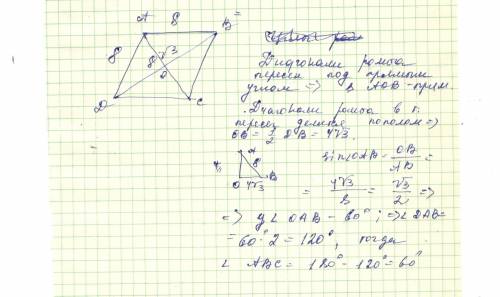 A 8 B
8 8√3
O
D C
Диагонали ромба
пересек под прямым
углом => △ AOB - прям.
Диагонали ромба в т.
пересеч делятся пополам =>
OB = 1/2 DB = 4√3.
A
8
O 4√3 B
sin∠OAB = OB/AB =
= 4√3/8 = √3/2 =>
=> ∠OAB - 60°; => ∠DAB =
= 60°·2 = 120°, тогда
∠ ABC = 180° - 120° = 60°